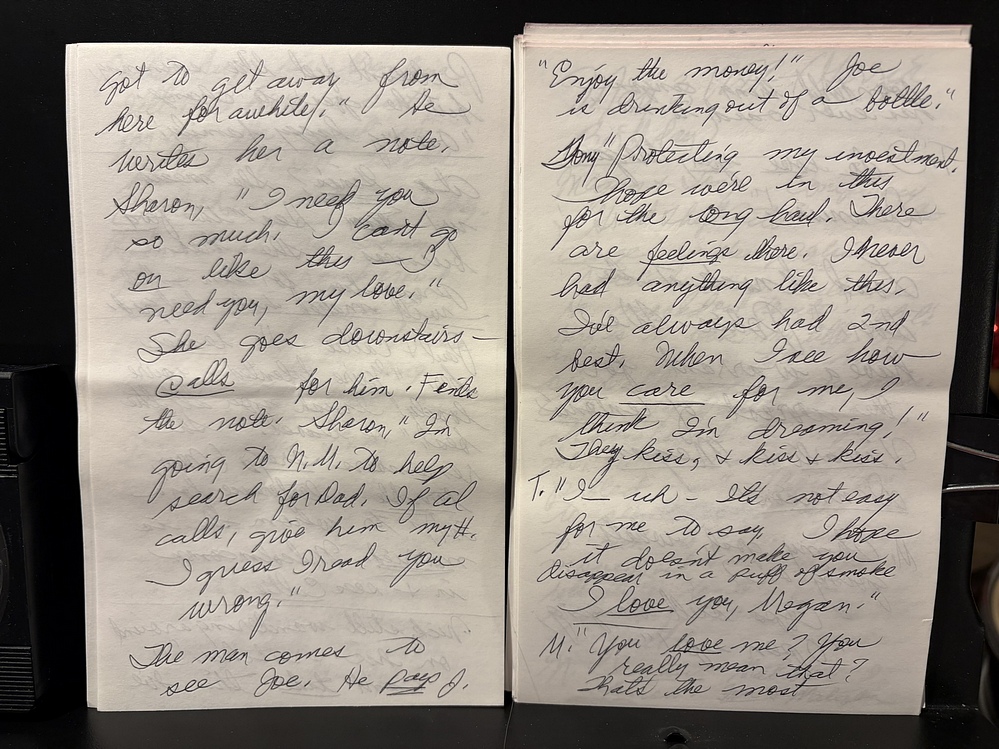 got to get away from
here for awhile." He
writes her a note.
Sharon, "I need you
so much. I can't go
on like this — I
need you, my love."
She goes downstairs —
calls for him. Finds
the note. Sharon, "I'm
going to N.M. to help
search for Dad. If al
calls, give him my #.
I guess I read you
wrong."
The man comes to
see Joe. He pays J.
"Enjoy the money!" Joe
is drinking out of a bottle."
Tony "Protecting my investment.
I hope we're in this
for the long haul. There
are feelings there. I never
had anything like this.
I've always had 2nd
best. When I see how
you care for me, I
think I'm dreaming!"
They kiss, & kiss & kiss.
T. "I — uh — It's not easy
for me to say, I hope
it doesn't make you
disappear in a puff of smoke
I love you, Megan."
M. "You love me? You
really mean that?
That's the most